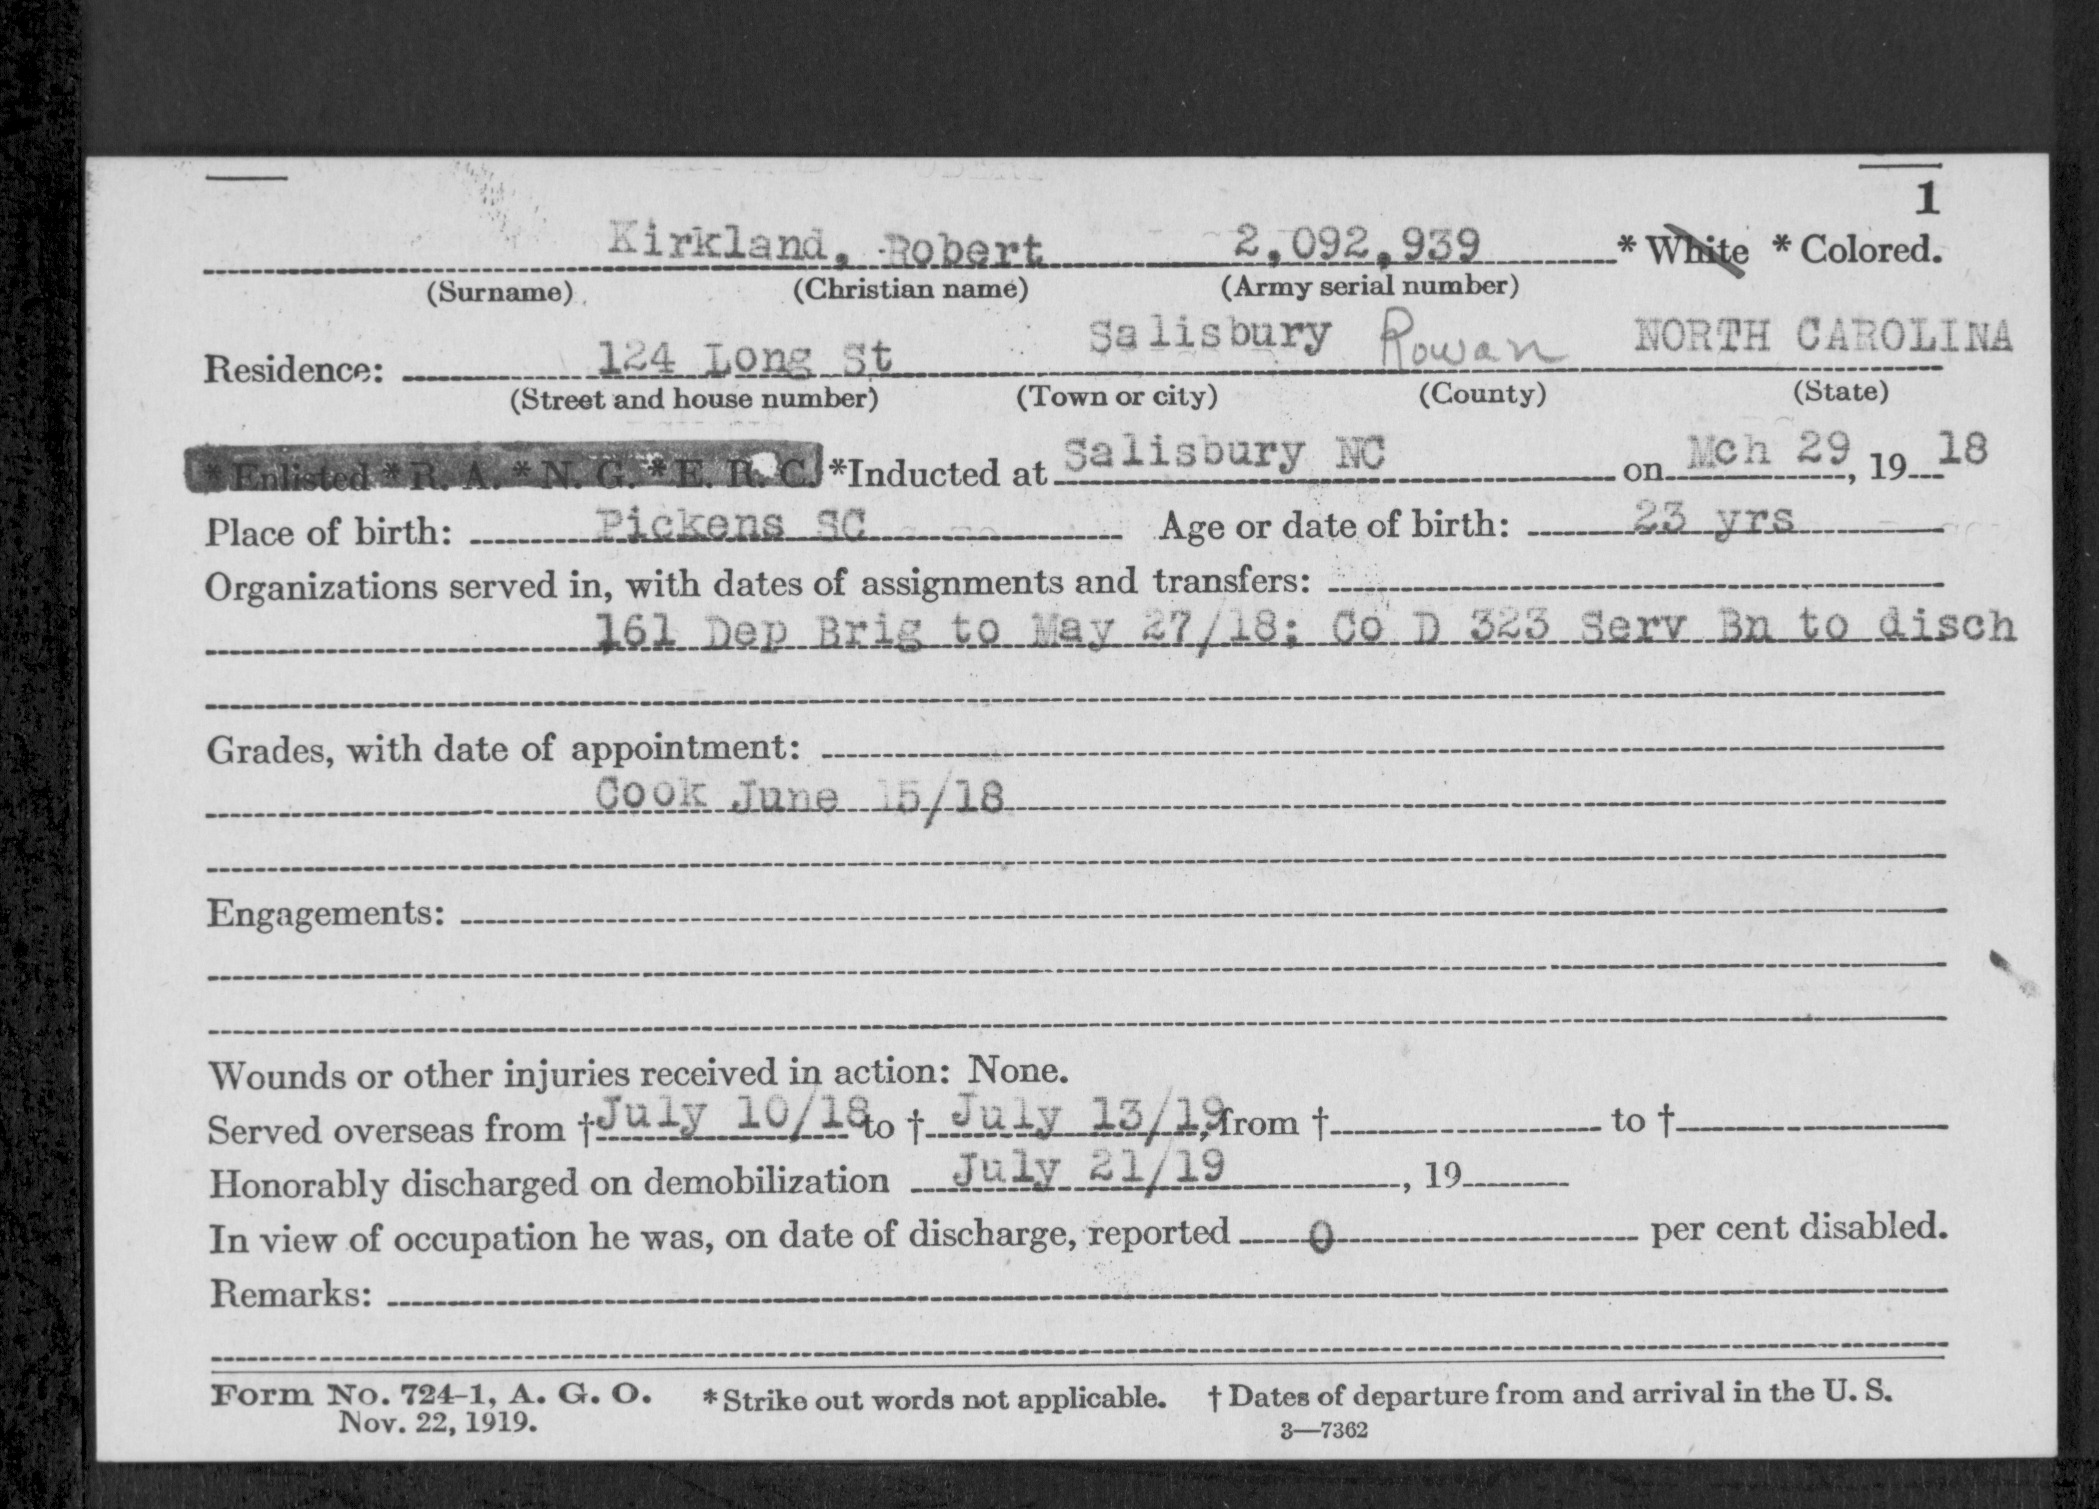 1
Kirkland, Robert 2,092,939 * White * Colored.
(Surname) (Christian name) (Army serial number)
Residence: 124 Long St Salisbury Rowan NORTH CAROLINA
(Street and house number) (Town or city) (County) (State)
* Enlisted * R. A. * N. G. * E. R. C. *Inducted at Salisbury NC on Mch 29, 19 18
Place of birth: Pickens SC Age or date of birth: 23 yrs
Organizations served in, with dates of assignments and transfers:
161 Dep Brig to May 27/18; Co D 323 Serv Bn to disch
Grades, with date of appointment:
Cook June 15/18
Engagements:
Wounds or other injuries received in action: None.
Served overseas from † July 10/18 to † July 13/19, from † to †
Honorably discharged on demobilization July 21/19, 19
In view of occupation he was, on date of discharge, reported 0 per cent disabled.
Remarks:
Form No. 724-1, A. G. O. * Strike out words not applicable. † Dates of departure from and arrival in the U. S.
Nov. 22, 1919. 3—7362